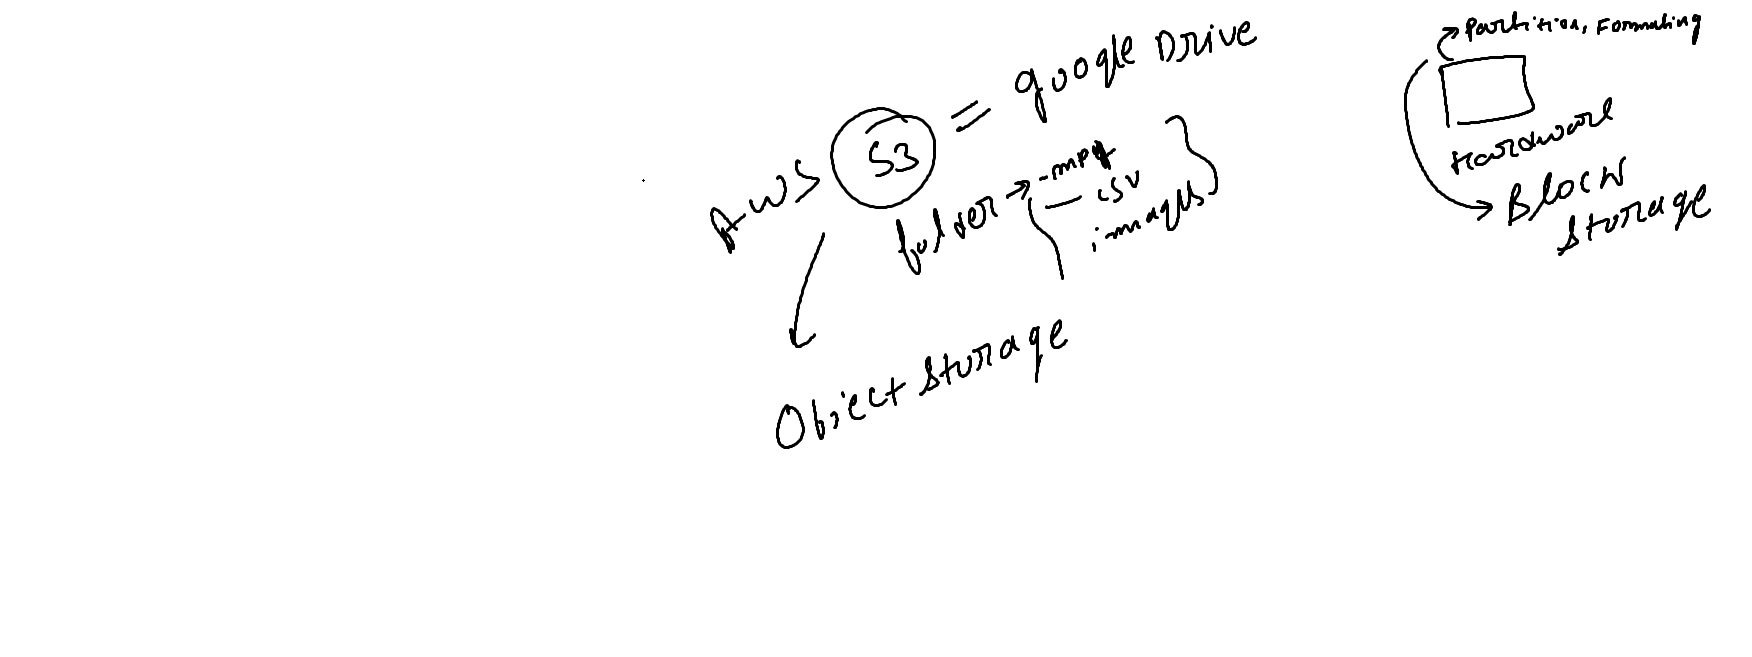 AWS S3 = google Drive
folder → .mpg
csv
images
Object Storage
Partition, Formating
Hardware
Block
Storage